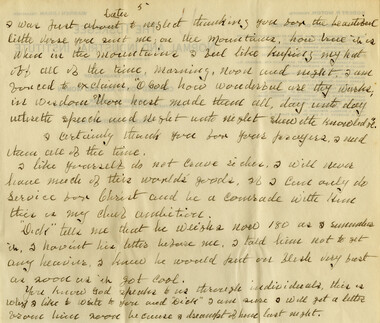 Later 5
I was just about to neglect thanking you for the beautiful
little verse you sent me on the Mountains, how true it is
when in the mountains I feel like keeping my hat
off all of the time, morning, noon and night, I am
forced to exclaim, "O God, how wonderful are thy works,
in wisdom Thou hast made them all, day unto day
uttereth speech and night unto night sheweth knowledge.
I certainly thank you for your prayers, I need
them all of the time.
I like yourself do not crave riches. I will never
have much of this worlds goods, if I can only do
service for Christ and be a comrade with Him
this is my chief ambition.
"Dick" tells me that he weighs now 180 as I remember
it, I havent his letter before me, I told him not to get
any heavier, I knew he would put on flesh very fast
as soon as it got cool.
You know God speaks to us through individuals, this is
why I like to write to you and Dick" I am sure I will get a letter
from him soon because I dreamed of him last night.